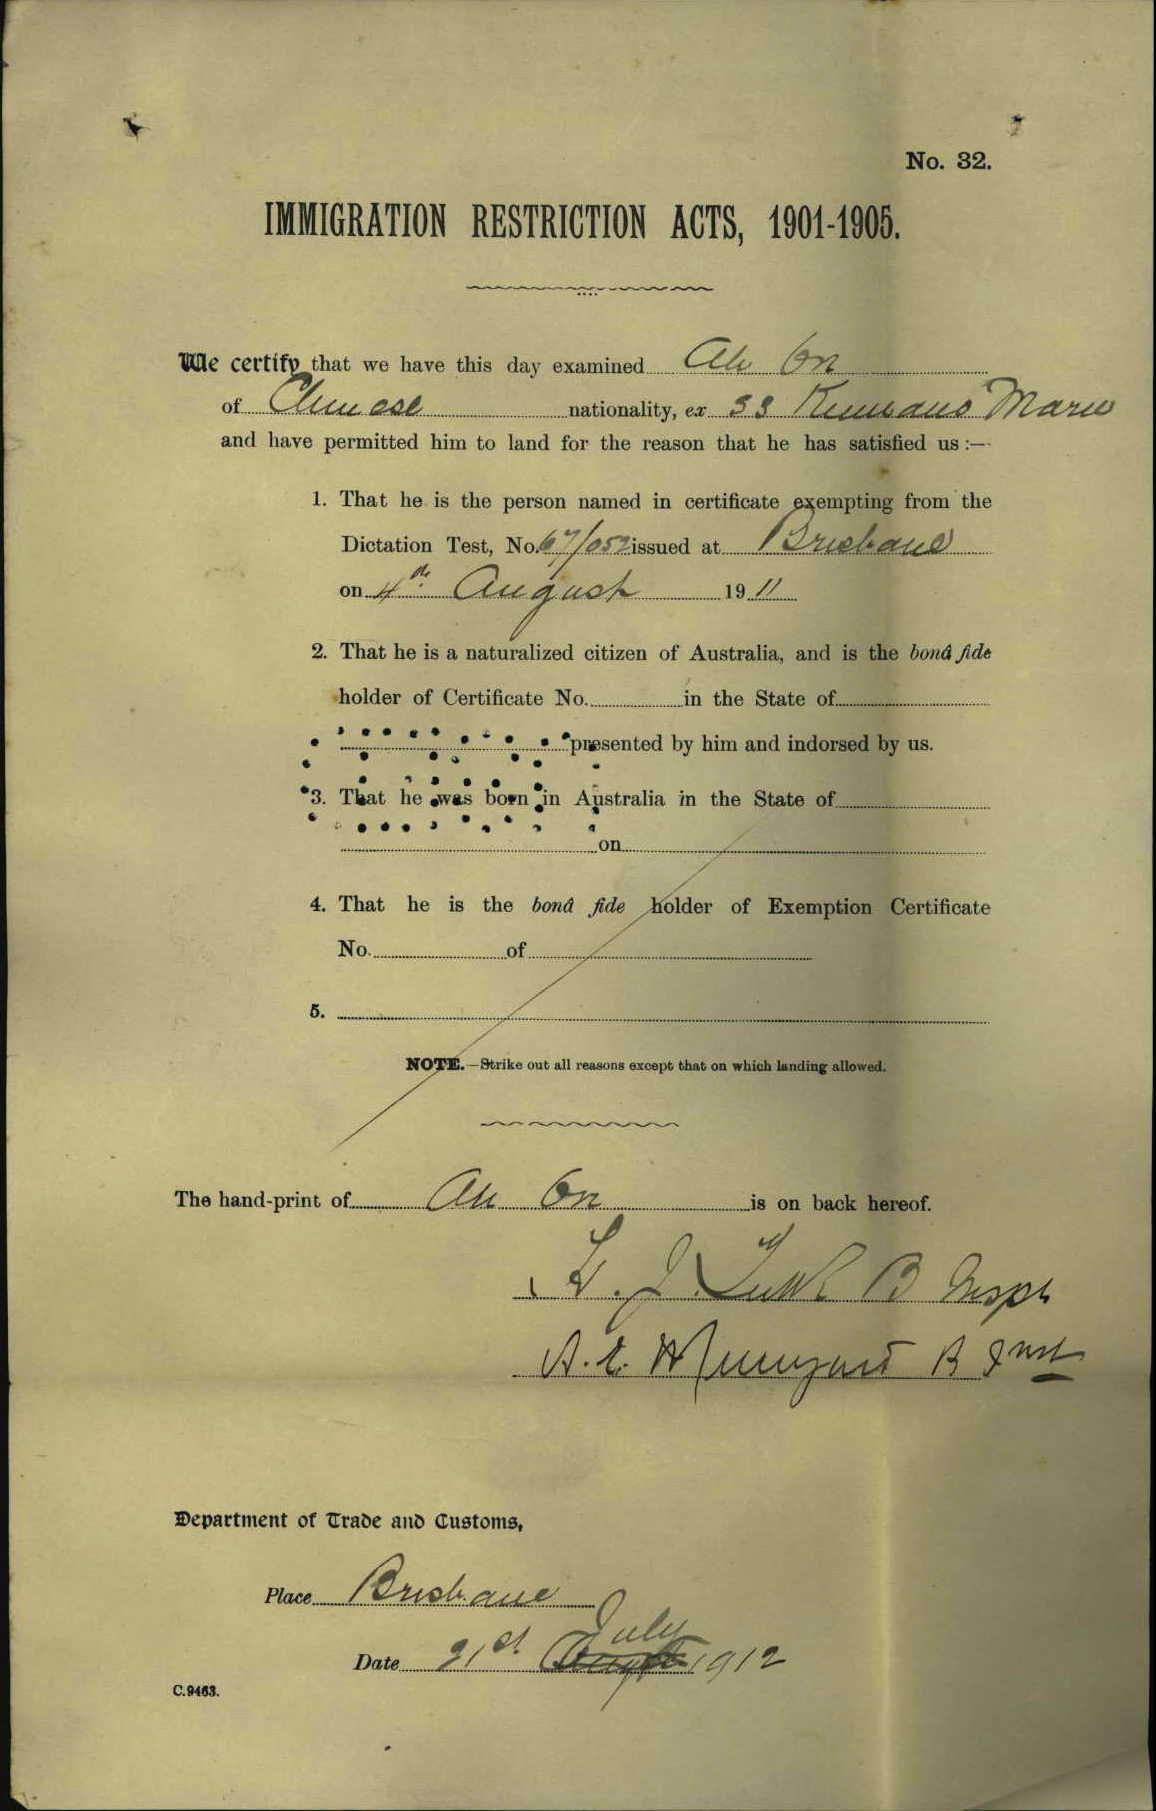 No. 32.
IMMIGRATION RESTRICTION ACTS, 1901-1905.
We certify that we have this day examined Ah On
of Chinese nationality, ex SS Kumano Maru
and have permitted him to land for the reason that he has satisfied us :—
1. That he is the person named in certificate exempting from the
Dictation Test, No. 67/052 issued at Brisbane
on 4th August 1911
2. That he is a naturalized citizen of Australia, and is the bonâ fide
holder of Certificate No. in the State of
presented by him and indorsed by us.
3. That he was born in Australia in the State of
on
4. That he is the bonâ fide holder of Exemption Certificate
No. of
5.
NOTE.—Strike out all reasons except that on which landing allowed.
The hand-print of Ah On is on back hereof.
J. B Inspr
A. E. B Inst
Department of Trade and Customs,
Place Brisbane
July
Date 21st August 1912
C.9463.